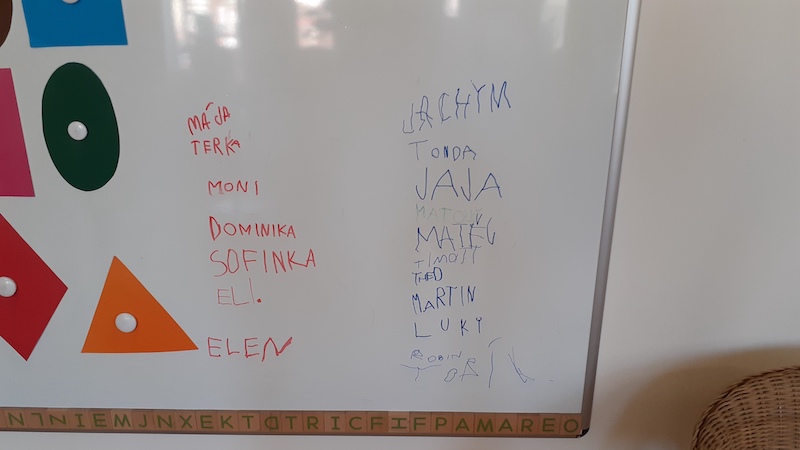 MÁJA
TERKA
MONI
DOMINIKA
SOFINKA
ELI.
ELEN
JÁCHYM
TONDA
JAJA
MATOUŠ
MATĚJ
TIMOTI
THEO
MARTIN
LUKY
ROBIN
TOBÍK
NLNIEMJNXEKTDTRICFIFPAMAREO